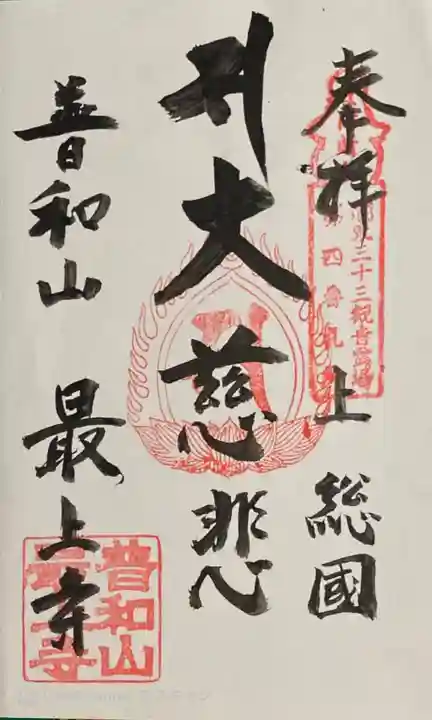 奉拝
上総國
三十三観音霊場
第四番札所
大慈悲
普和山
最上寺
普和山
最上寺